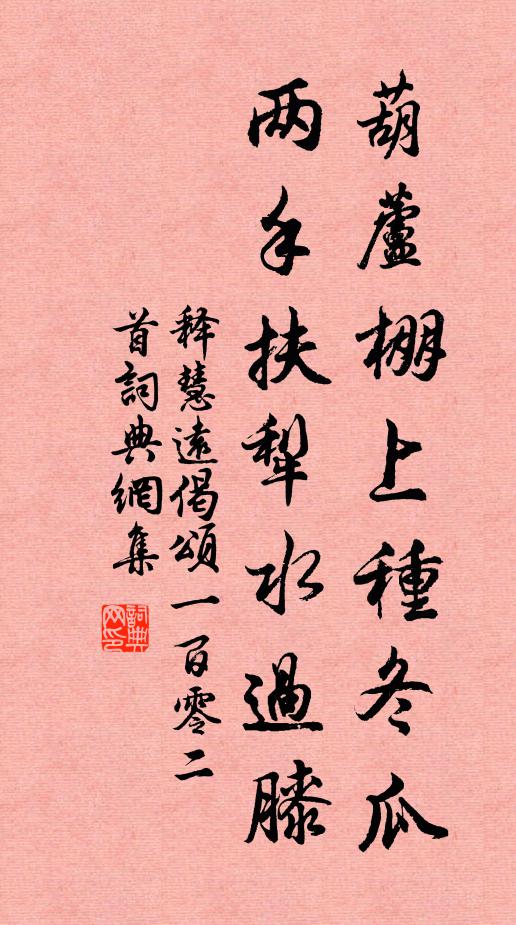 葫蘆棚上種冬瓜
两手扶犁水過膝
释慧遠偈頌一百零二
首詞典網集
詞典
网印